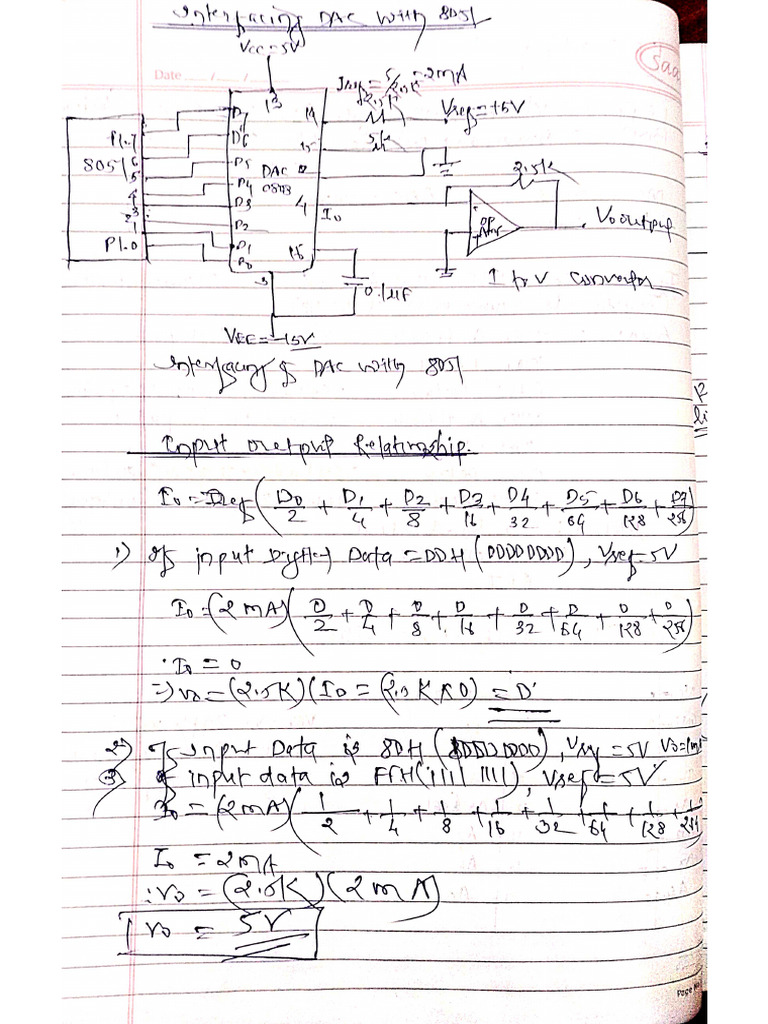 Interfacing DAC with 8051
Vcc=5V
Date
Saa
Iref = 5/2.5K = 2mA
13
14
2.5K
Vref=+5V
P1.7
6
5
4
3
2
1
P1.0
8051
D7
D6
D5
D4
D3
D2
D1
D0
DAC
0808
15
5K
2
4
I0
16
3
2.5K
OP
Amp
Vo output
I to V Convertor
0.1μF
VEE=-15V
Interfacing of DAC with 8051
Input output Relationship.
I0 = Iref (D0/2 + D1/4 + D2/8 + D3/16 + D4/32 + D5/64 + D6/128 + D7/256)
1) If input Digital Data = 00H (00000000), Vref=5V
I0 = (2mA) (0/2 + 0/4 + 0/8 + 0/16 + 0/32 + 0/64 + 0/128 + 0/256)
∴ I0 = 0
⇒ V0 = (2.5K)(I0 = (2.5K×0) = 0
2) If input Data is 80H (10000000), Vref=5V
3) If input data is FFH (1111 1111), Vref=5V
I0 = (2mA) (1/2 + 1/4 + 1/8 + 1/16 + 1/32 + 1/64 + 1/128 + 1/256
I0 = 2mA
∴ V0 = (2.5K) (2mA)
V0 = 5V
Page No